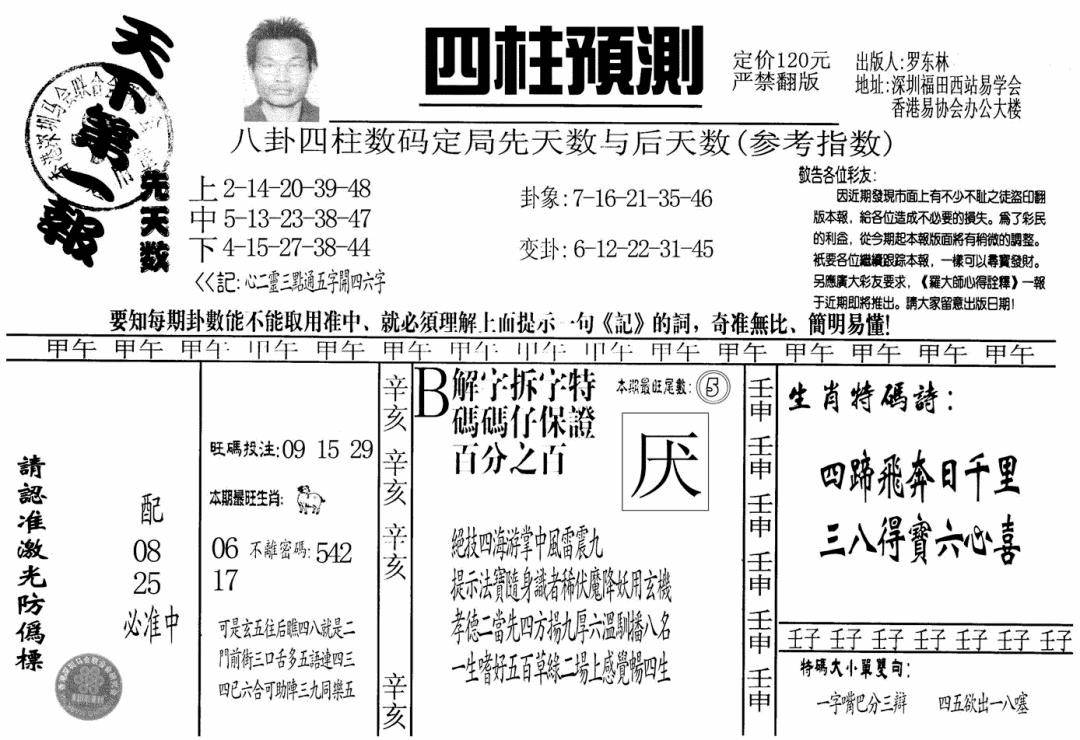 天下第一報
四柱預測
定价120元
严禁翻版
出版人:罗东林
地址:深圳福田西站易学会
香港易协会办公大楼
八卦四柱数码定局先天数与后天数(参考指数)
先天数
上2-14-20-39-48
中5-13-23-38-47
下4-15-27-38-44
卦象:7-16-21-35-46
变卦:6-12-22-31-45
<<記:心二靈三點通五字開四六字
敬告各位彩友:
因近期發現市面上有不少不恥之徒盜印翻
版本報,給各位造成不必要的損失。為了彩民
的利益,從今期起本報版面將有稍微的調整。
衹要各位繼續跟踪本報,一樣可以尋寶發財。
另應廣大彩友要求,《羅大師心得詮釋》一報
于近期即將推出。請大家留意出版日期!
要知每期卦數能不能取用准中、就必須理解上面提示一句《記》的詞,奇准無比、簡明易懂!
甲午 甲午 甲午 甲午 甲午 甲午 甲午 甲午 甲午 甲午 甲午 甲午 甲午 甲午 甲午
請認准激光防僞標
配
08
25
必准中
旺碼投注:09 15 29
本期最旺生肖:
06 不離密碼:542
17
可是玄五往后瞧四八就是二
門前街三口舌多五語連四三
四巳六合可助陣三九同樂五
辛亥 辛亥 辛亥 辛亥
B解字拆字特
碼碼仔保證
百分之百
本期最旺尾數:5
厌
絕技四海游掌中風雷震九
提示法寶隨身識者稀伏魔降妖用玄機
孝德二當先四方揚九厚六溫馴播八名
一生嗜好五百草綠二場上感覺暢四生
壬申 壬申 壬申 壬申 壬申 壬申
生肖特碼詩:
四蹄飛奔日千里
三八得寶六心喜
壬子 壬子 壬子 壬子 壬子 壬子 壬子
特碼大小單雙句:
一字嘴巴分三辯 四五欲出一八塞